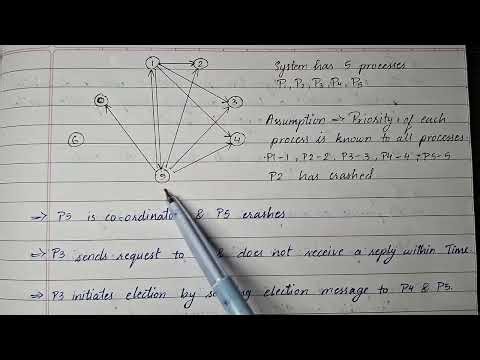 1
2
System has 5 processes
P1, P2, P3, P4, P5
0
3
Assumption → Priority of each
process is known to all processes.
6
4
P1-1, P2-2, P3-3, P4-4, P5-5
5
P2 has crashed
⇒ P5 is co-ordinator & P5 crashes
⇒ P3 sends request to & does not receive a reply within Time.
⇒ P3 initiates election by election message to P4 & P5.